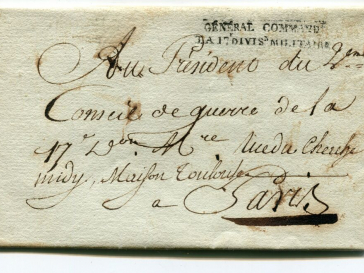 GÉNÉRAL COMMANDT
LA 1re DIVISn MILITAIRE
Au Président du 2eme
Conseil de guerre de la
17e Don Mre Rue du Cherche
midy, Maison Toulouse
a Paris